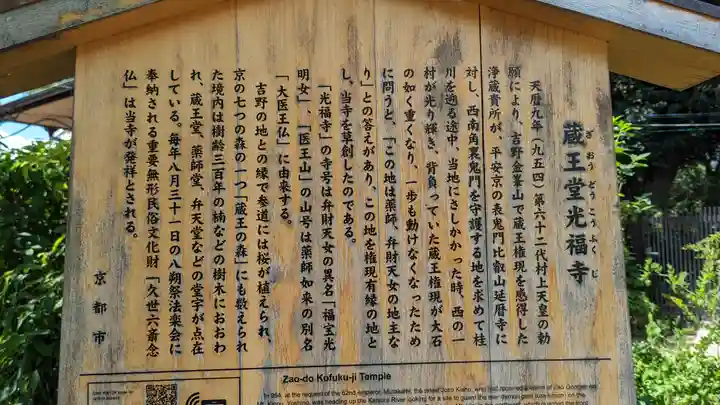 蔵王堂光福寺
ざおうどうこうふくじ
天暦九年(九五四)第六十二代村上天皇の勅
願により、吉野金峯山で蔵王権現を感得した
浄蔵貴所が、平安京の表鬼門比叡山延暦寺に
対し、西南角裏鬼門を守護する地を求めて桂
川を遡る途中、当地にさしかかった時、西の一
村が光り輝き、背負っていた蔵王権現が大石
の如く重くなり、一歩も動けなくなったため
に問うと、「この地は薬師、弁財天女の地主な
り」との答えがあり、この地を権現有縁の地と
し、当寺を草創したのである。
「光福寺」の寺号は弁財天女の異名「福宝光
明女」、「医王山」の山号は薬師如来の別名
「大医王仏」に由来する。
吉野の地との縁で参道には桜が植えられ、
京の七つの森の一つ「蔵王の森」にも数えられ
た境内は樹齢三百年の楠などの樹木におおわ
れ、蔵王堂、薬師堂、弁天堂などの堂宇が点在
している。毎年八月三十一日の八朔祭法楽会に
奉納される重要無形民俗文化財「久世六斎念
仏」は当寺が発祥とされる。
京都市
Zao-do Kofuku-ji Temple
In 954, at the request of the 62nd emperor, Murakami, the priest Jozo Kisho, who had